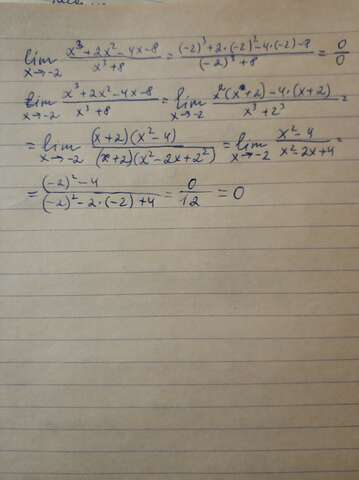 lim x→-2 (x³+2x²-4x-8)/(x³+8) = ((-2)³+2·(-2)²-4·(-2)-8)/((-2)³+8) = 0/0
lim x→-2 (x³+2x²-4x-8)/(x³+8) = lim x→-2 (x²(x+2)-4·(x+2))/(x³+2³) =
= lim x→-2 ((x+2)(x²-4))/((x+2)(x²-2x+2²)) = lim x→-2 (x²-4)/(x²-2x+4) =
= ((-2)²-4)/((-2)²-2·(-2)+4) = 0/12 = 0